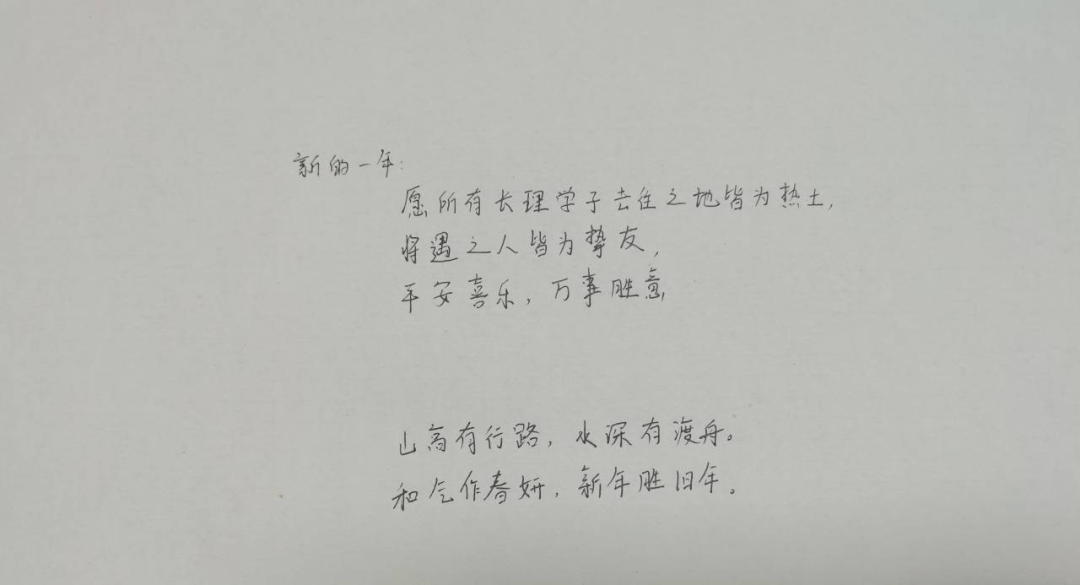 新的一年:
愿所有长理学子去往之地皆为热土,
将遇之人皆为挚友,
平安喜乐,万事胜意
山高有行路,水深有渡舟。
和气作春妍,新年胜旧年。